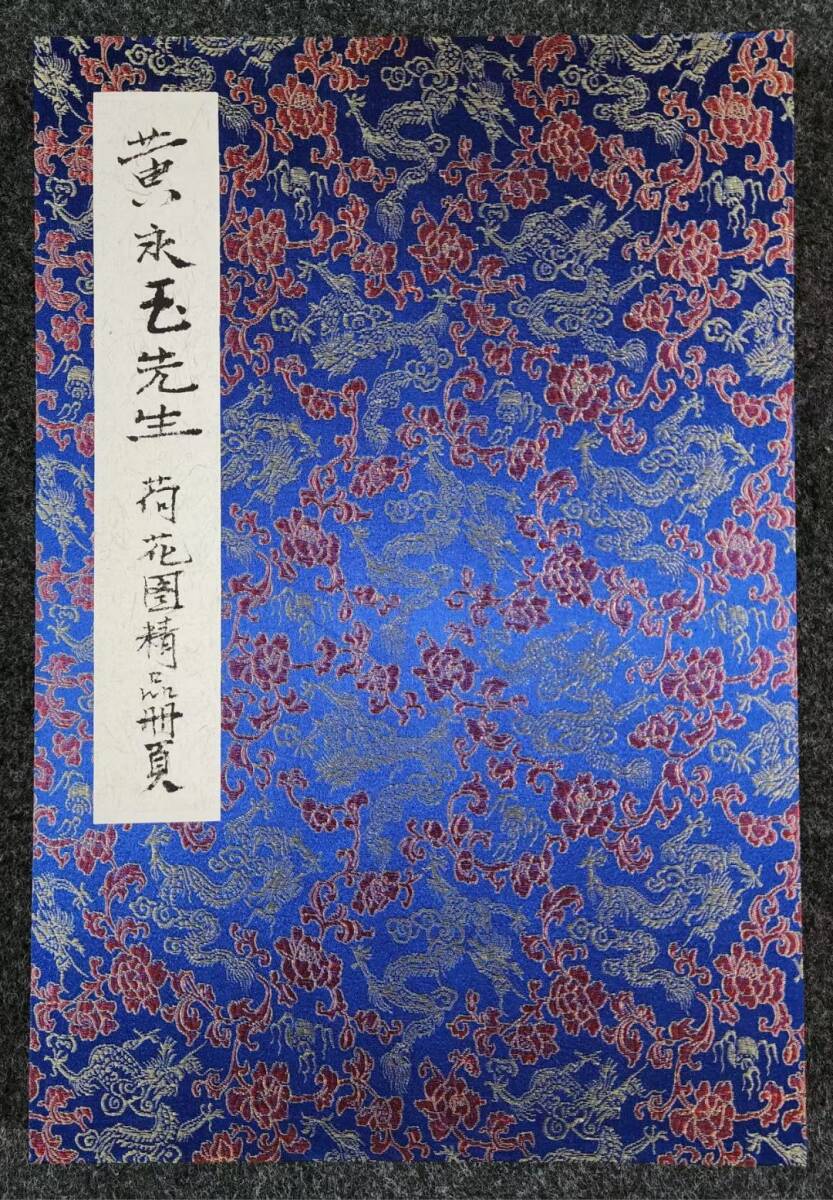 黄永玉先生 荷花图精品册頁